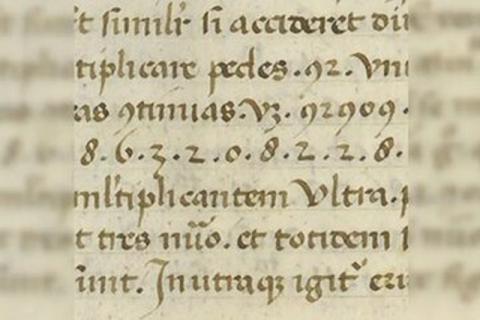 t simil'r si accideret
tiplicare pedes . 92 . Vni
as 9tinuas. Vz. 92909 .
8 . 6 . 3 . 2 . 0 . 8 . 2 . 2 . 8 .
ml'tiplicantem Vltra . p
t tres nũo . et totidem
unt . In utraqz igit᷑